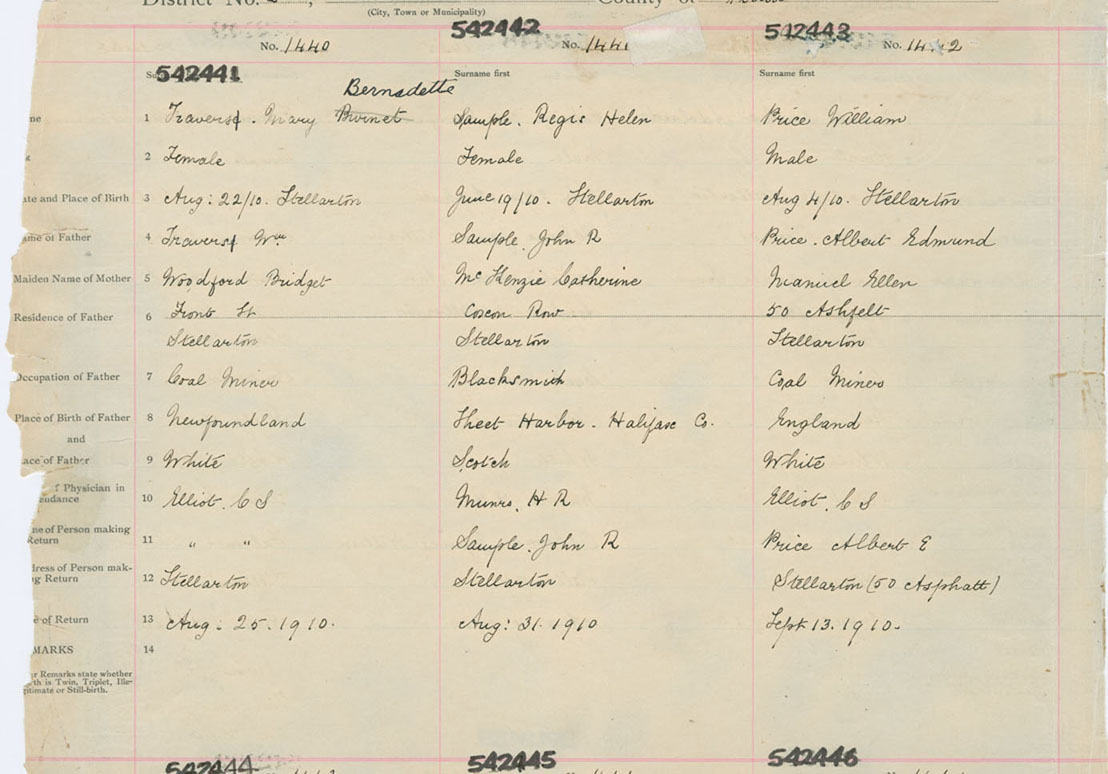 District No. 2, County of
(City, Town or Municipality)
542442 542443
No. 1440 No. 1441 No. 1442
542441 Surname first Surname first
Bernadette
me 1 Travers. Mary Burnet Sample. Regis Helen Price William
2 Female Female Male
ate and Place of Birth 3 Aug: 22/10. Stellarton June 19/10. Stellarton Aug 4/10. Stellarton
ame of Father 4 Travers Wm Sample. John R Price. Albert Edmund
Maiden Name of Mother 5 Woodford Bridget McKenzie Catherine Manuel Ellen
Residence of Father 6 Front St Row 50 Ashfelt
Stellarton Stellarton Stellarton
Occupation of Father 7 Coal Miner Blacksmith Coal Miner
Place of Birth of Father 8 Newfoundland Sheet Harbor. Halifax Co. England
and
ace of Father 9 White Scotch White
f Physician in
endance 10 Elliot. C S Munro. H R Elliot. C S
me of Person making
Return 11 " " Sample. John R Price Albert E
dress of Person mak-
ng Return 12 Stellarton Stellarton Stellarton (50 Asphatt)
e of Return 13 Aug: 25. 1910. Aug: 31. 1910 Sept 13. 1910.
MARKS 14
r Remarks state whether
rth is Twin, Triplet, Ille-
gitimate or Still-birth.
542444 542445 542446